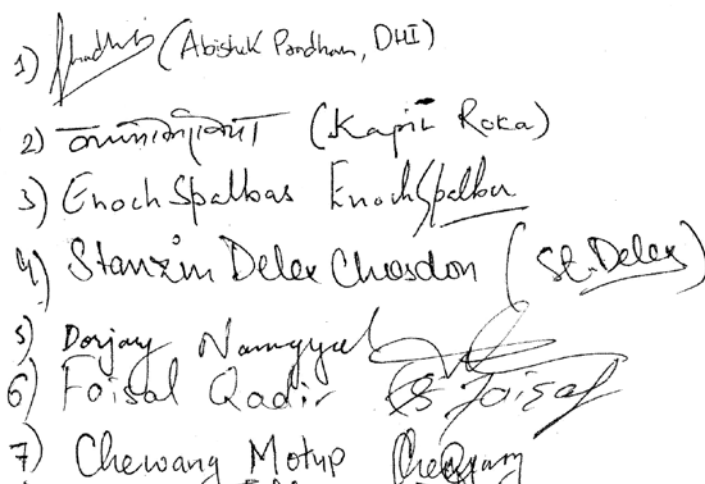 1) (Abishek Pradhan, DHI)
2) (Kapil Roka)
3) Enoch Spalbas Enoch Spalbar
4) Stanzin Delex Chosdon (St. Delex)
5) Dorjay Namgyal
6) Faisal Qadir Faisal
7) Chewang Motup Chewang